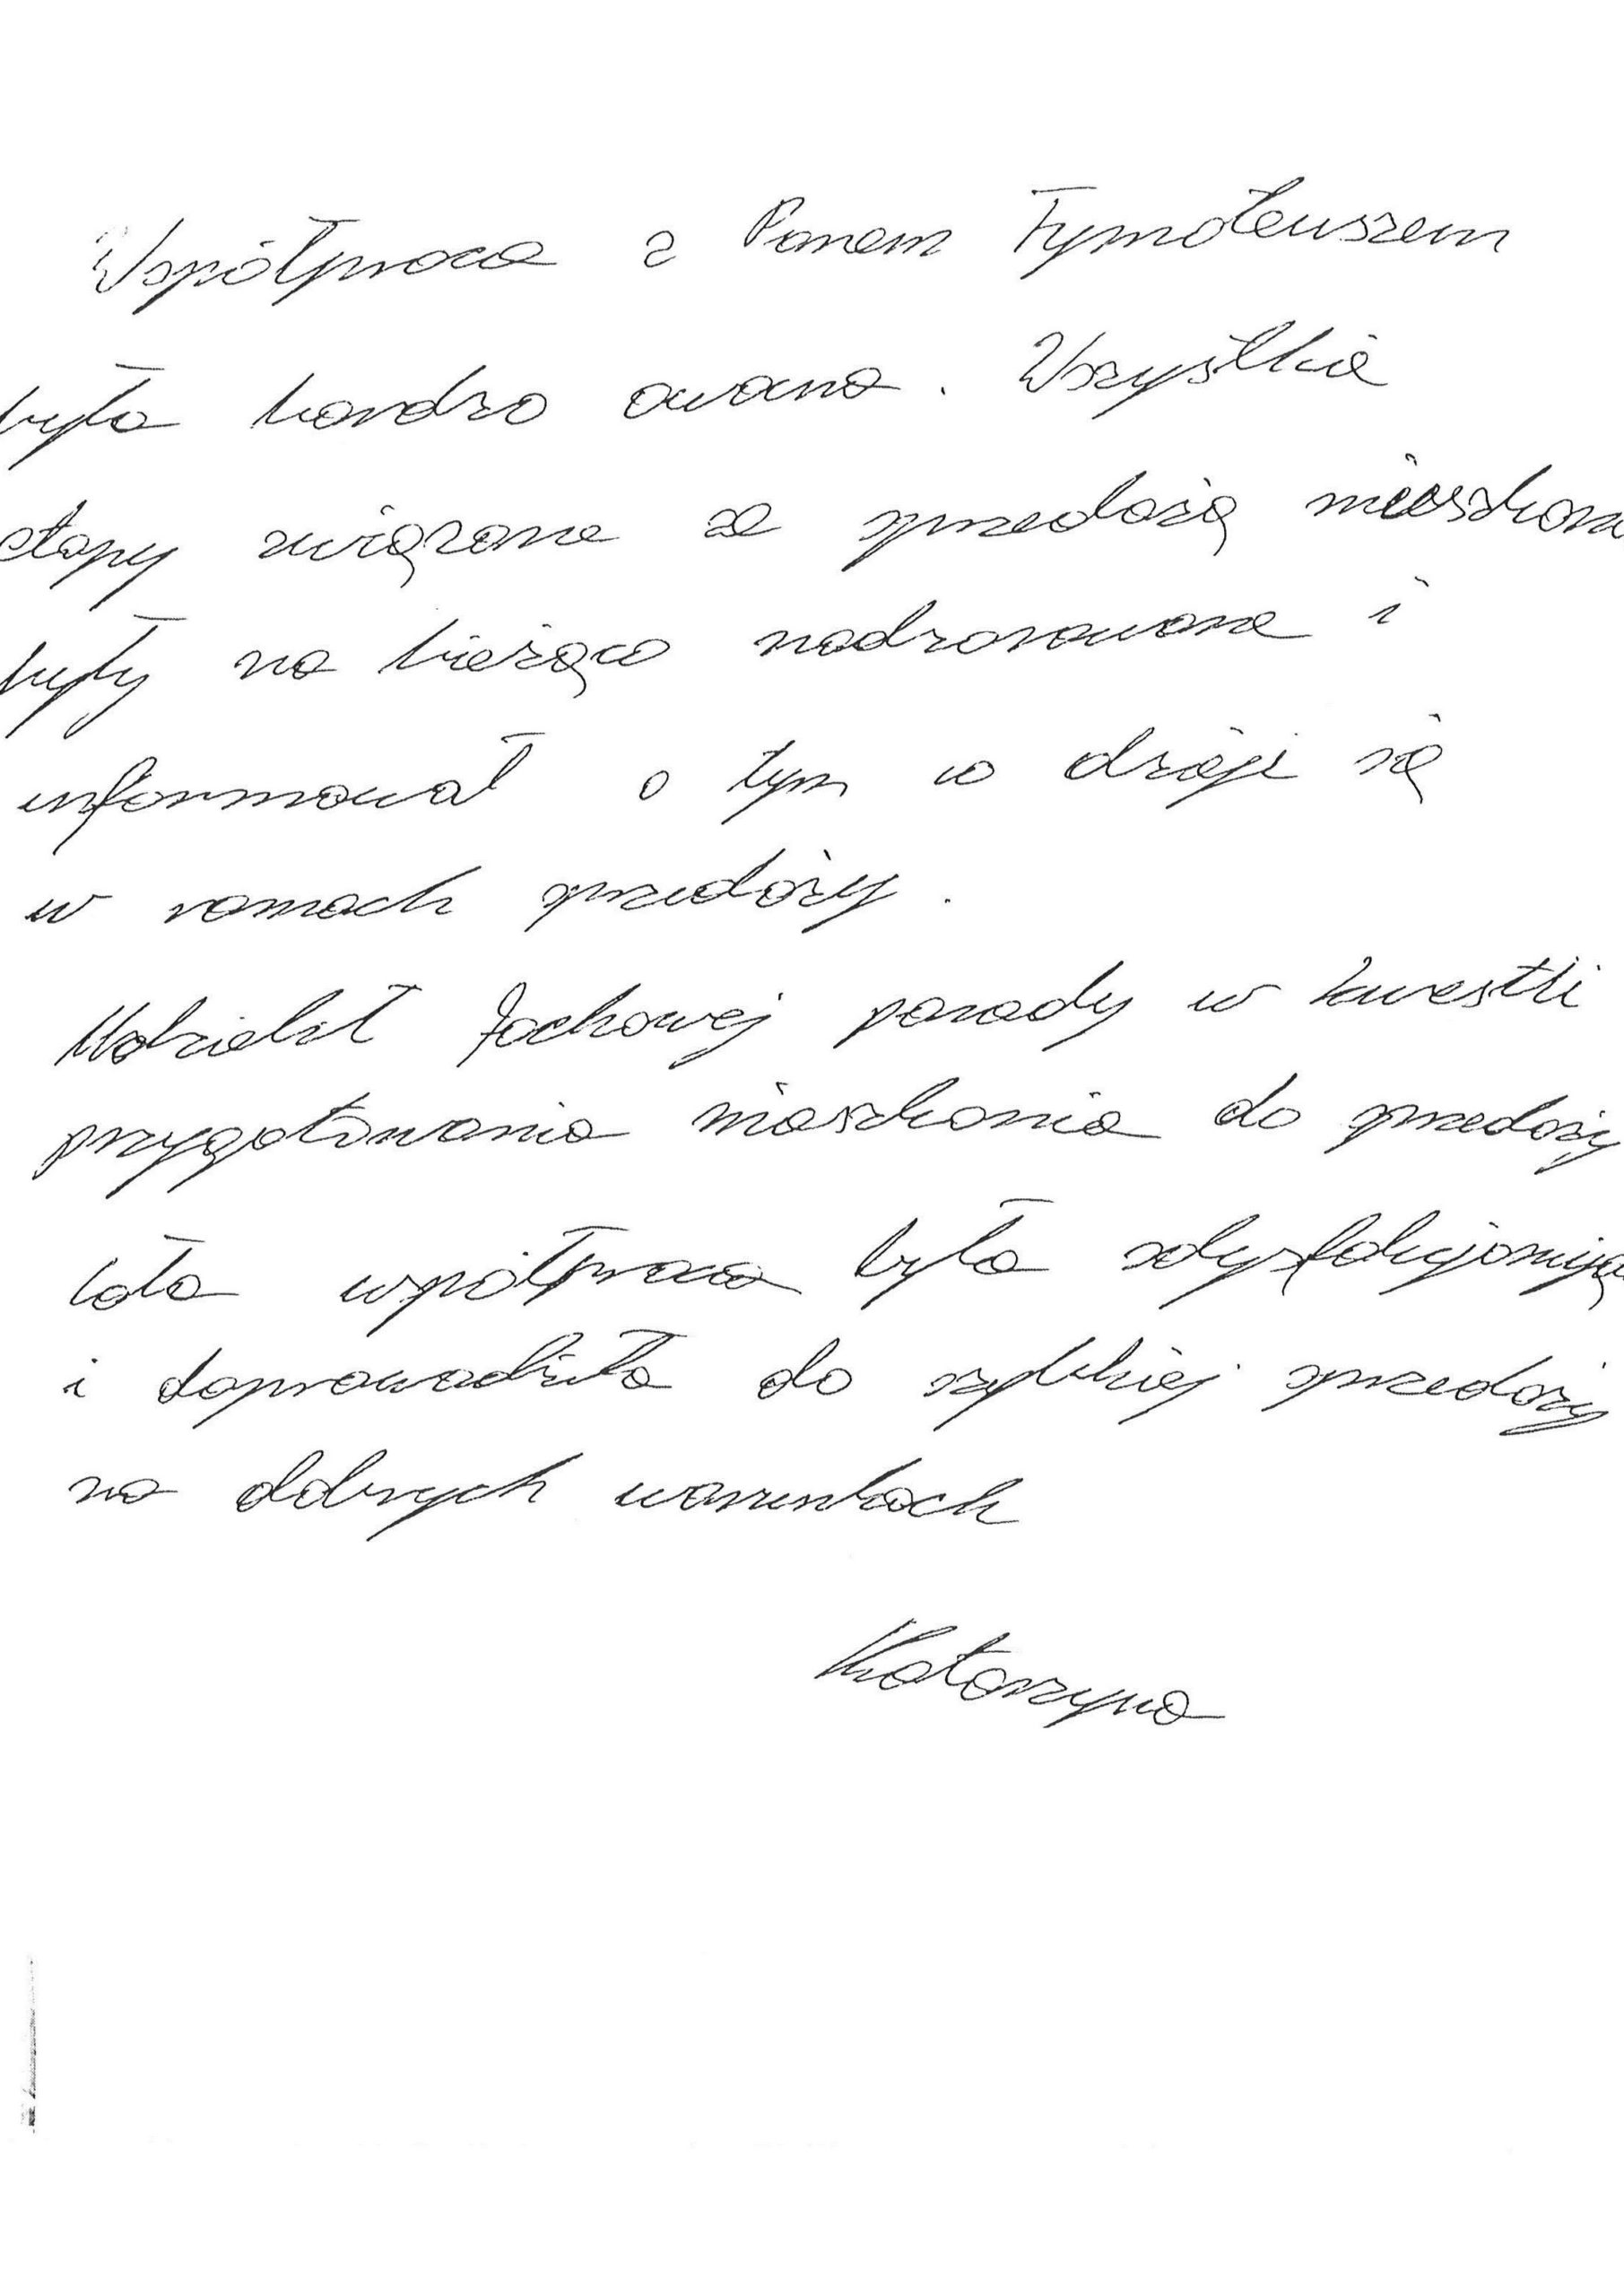 Współpraca z Panem Tymoteuszem
była bardzo owocna. Wszystkie
etapy związane ze sprzedażą mieszkan
były na bieżąco nadzorowane i
informował o tym co dzieje się
w ramach sprzedaży.
Udzielał fachowej porady w kwestii
przygotowania mieszkania do sprzedaży
Cała współpraca była satysfakcjonują
i doprowadziła do szybkiej sprzedaży
na dobrych warunkach
Katarzyna